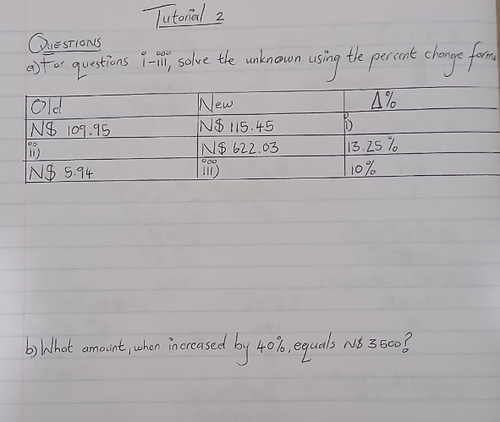 Tutorial 2
QUESTIONS
a) For questions i-iii, solve the unknown using the percent change form
Old New Δ%
N$ 109.95 N$ 115.45 i)
ii) N$ 622.03 13.25%
N$ 5.94 iii) 10%
b) What amount, when increased by 40%, equals N$ 3500?